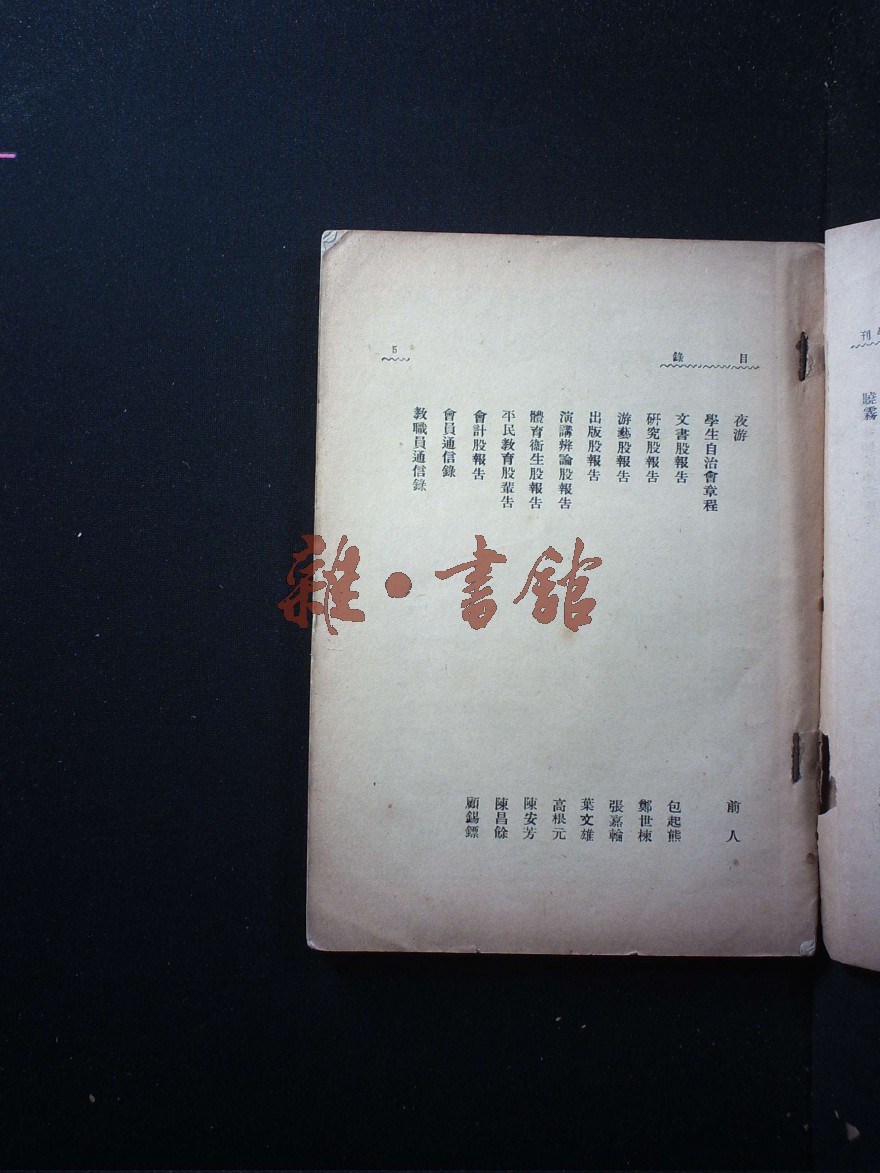 目錄
5
夜游 前人
學生自治會章程
文書股報告 包起熊
研究股報告 鄭世棟
游藝股報告 張嘉翰
出版股報告 葉文雄
演講辨論股報告 高根元
體育衞生股報告 陳安芳
平民教育股輩告 陳昌餘
會計股報告 顧錫鏢
會員通信錄
教職員通信錄
雜·書館
刊
曉霧